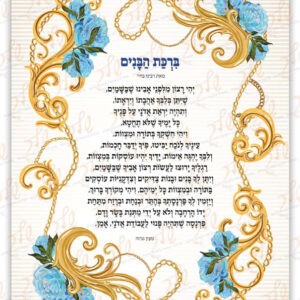 בִּרְכַּת הַבָּנִים
יְהִי רָצוֹן מִלִּפְנֵי אָבִינוּ שֶׁבַּשָּׁמַיִם,
שֶׁיִּתֵּן בְּלִבְּךָ אַהֲבָתוֹ וְיִרְאָתוֹ,
וְתִהְיֶה יִרְאַת ה' עַל פָּנֶיךָ
כָּל יָמֶיךָ שֶׁלֹּא תֶחֱטָא,
וִיהִי חִשְׁקְךָ בַּתּוֹרָה וּבַמִּצְווֹת,
עֵינֶיךָ לְנֹכַח יַבִּיטוּ, פִּיךָ יְדַבֵּר חָכְמוֹת
וְלִבְּךָ יֶהְגֶּה אֵימוֹת, יָדֶיךָ יִהְיוּ עוֹסְקוֹת בְּמִצְווֹת,
רַגְלֶיךָ יָרוּצוּ לַעֲשׂוֹת רְצוֹן אָבִיךָ שֶׁבַּשָּׁמַיִם,
יִתֵּן לְךָ בָּנִים וּבָנוֹת צַדִּיקִים וְצִדְקָנִיּוֹת
עוֹסְקִים בַּתּוֹרָה וּבַמִּצְווֹת כָּל יְמֵיהֶם, וִיהִי מְקוֹרְךָ בָּרוּךְ,
וְיַזְמִין לְךָ פַּרְנָסָתְךָ בְּהֶתֵּר וּבְנַחַת וּבְרֶוַח מִתַּחַת
יָדוֹ הָרְחָבָה וְלֹא עַל יְדֵי מַתְּנַת בָּשָׂר וָדָם,
פַּרְנָסָה שֶׁתִּהְיֶה פָּנוּי לַעֲבוֹדַת ה', אָמֵן.